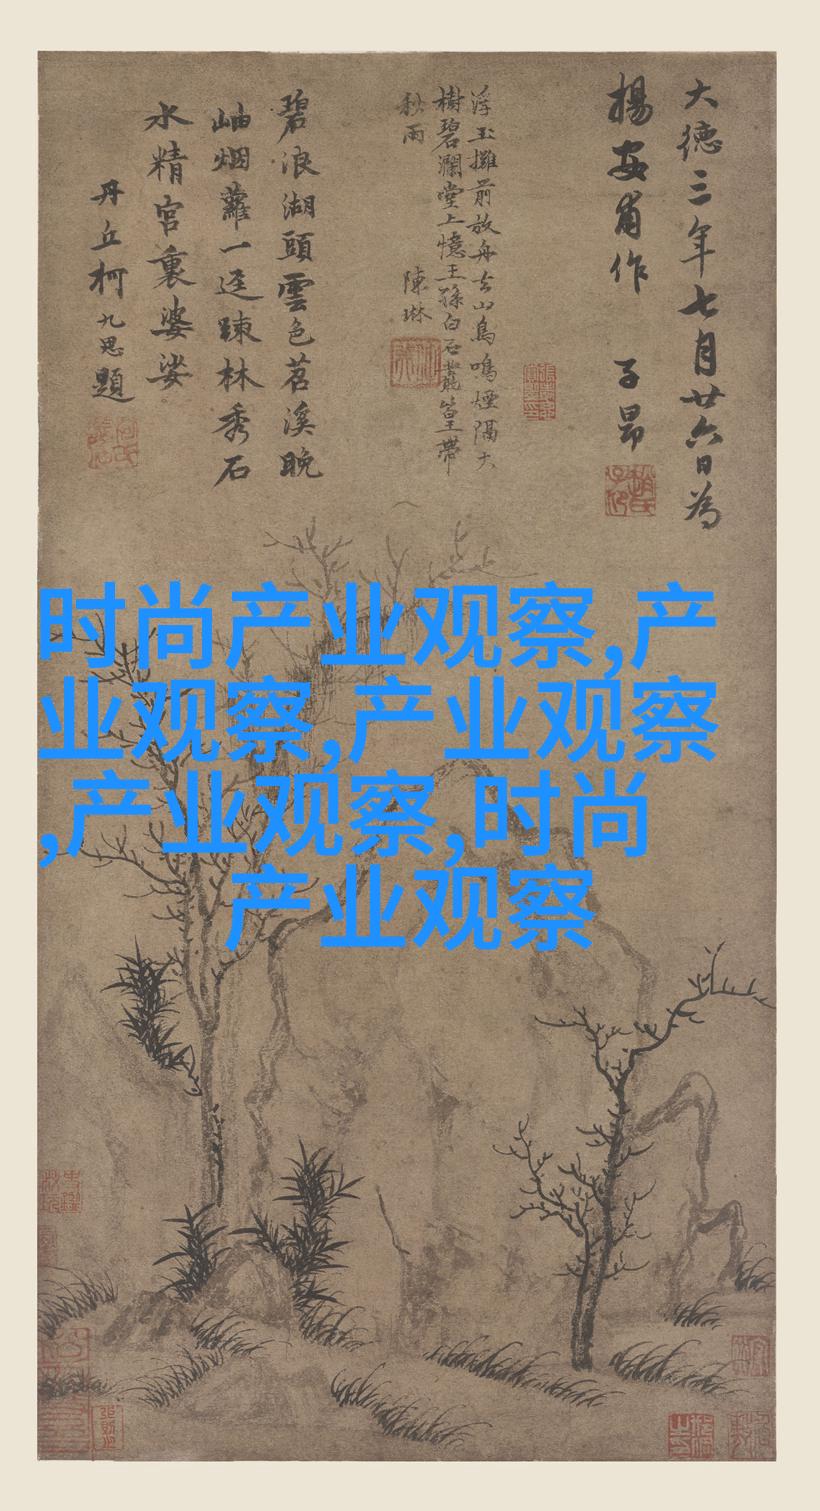 大德三年七月廿六日為
楊安甫作 子昂
浮玉攤前放舟去山鳥鳴煙隔大
樹碧瀾堂上憶王孫白石叢篁帶
秋雨 陳琳
碧浪湖頭雲色苕溪晚
岫烟蘿一逕踈林秀石
水精宮裏婆娑
丹丘柯九思題
时尚产业观察,产
业观察,产业观察
,产业观察,时尚
产业观察